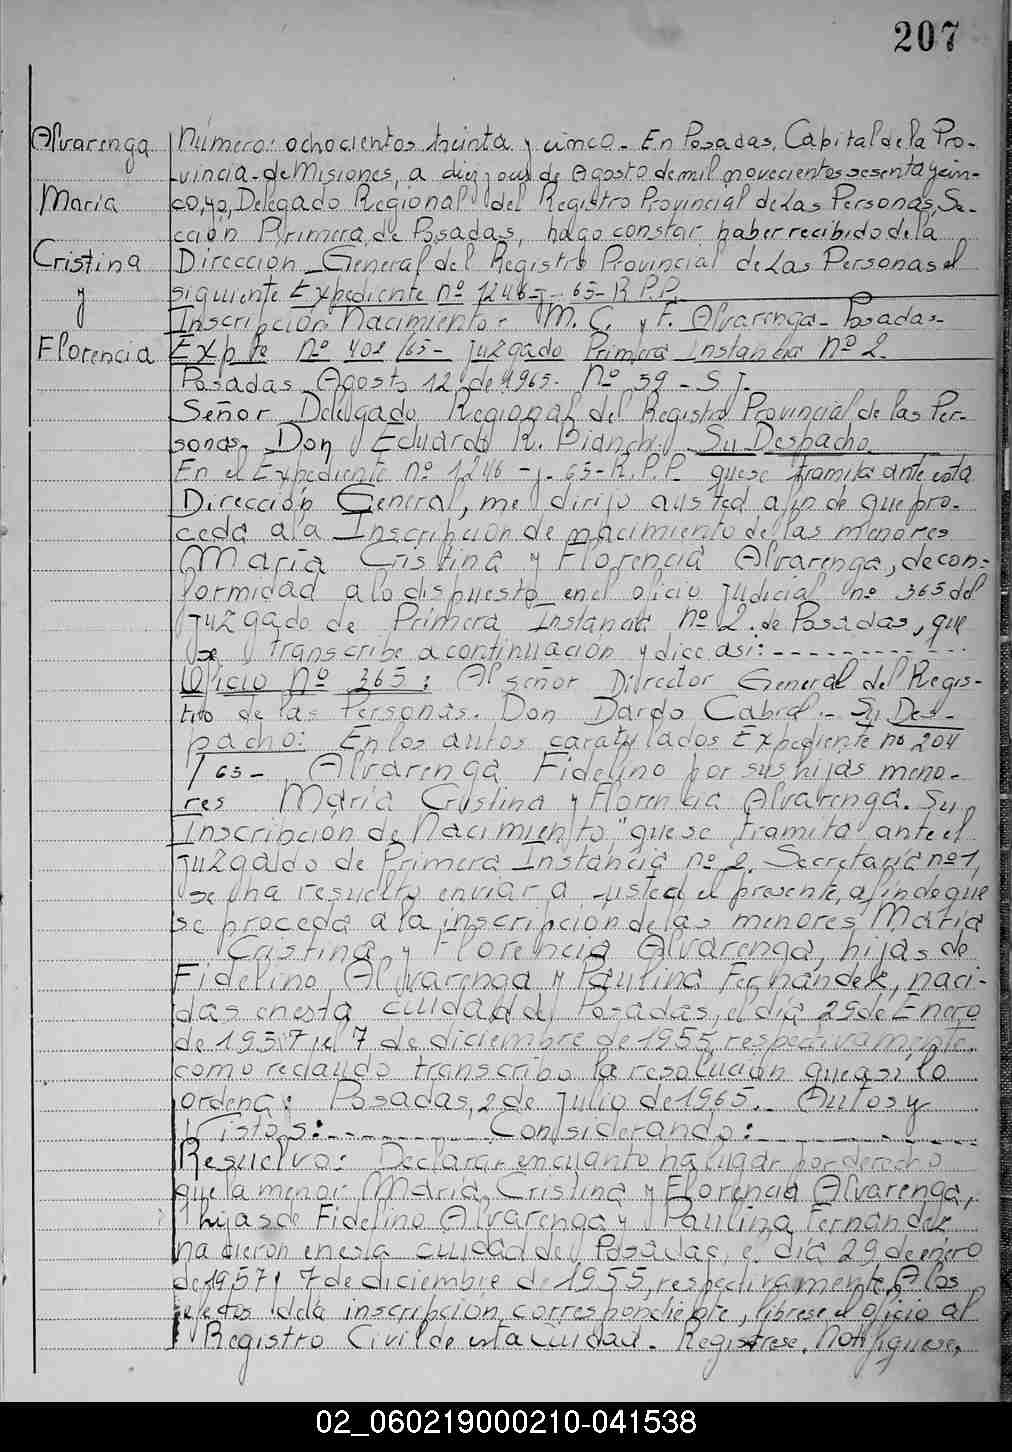 207
Alvarenga
Maria
Cristina
y
Florencia
Número: ochocientos treinta y cinco. En Posadas, Capital de la Pro-
vincia de Misiones, a diez y seis de Agosto de mil novecientos sesenta y cin-
co, yo, Delegado Regional del Registro Provincial de Las Personas, Se-
cción Primera, de Posadas, hago constar haber recibido de la
Dirección General del Registro Provincial de Las Personas el
siguiente Expediente nº 1246-J-65-R.P.P.
Inscripción Nacimiento - M. C. y F. Alvarenga - Posadas-
Expte nº 402/65- Juzgado Primera Instancia Nº 2.
Posadas Agosto 12 de 1965. Nº 59 - S J.
Señor Delegado Regional del Registro Provincial de las Per-
sonas. Don Eduardo R. Bianchi. Su Despacho
En el Expediente nº 1246 - J- 65-R.P.P. que se tramita ante esta
Dirección General, me dirijo a usted a fin de que pro-
ceda a la Inscripción de nacimiento de las menores
Maria Cristina y Florencia Alvarenga, de con-
formidad a lo dispuesto en el oficio judicial nº 365 del
Juzgado de Primera Instancia Nº 2. de Posadas, que
se transcribe a continuación y dice así: -----------
Oficio Nº 365: Al señor Director General del Regis-
tro de las Personas. Don Dardo Cabral.- Su Des-
pacho: En los autos caratulados Expediente no 204
/65- Alvarenga Fidelino por sus hijas meno-
res Maria Cristina y Florencia Alvarenga. Su
Inscripción de Nacimiento" que se tramita ante el
Juzgado de Primera Instancia nº 2. Secretaria nº 1,
se ha resuelto enviar a usted el presente, a fin de que
se proceda a la inscripcion de las menores Maria
Cristina y Florencia Alvarenga, hijas de
Fidelino Alvarenga y Paulina Fernandez, naci-
das en esta ciudad de Posadas, el día 29 de Enero
de 1957 y el 7 de diciembre de 1955, respectivamente.
como recaudo transcribo la resolución que asi lo
ordena: Posadas, 2 de Julio de 1965.- Autos y
Vistos: -------- Considerando: --------
Resuelvo: Declarar en cuanto ha lugar por derecho
que la menor Maria Cristina y Florencia Alvarenga,
hijas de Fidelino Alvarenga y Paulina Fernandez
nacieron en esta ciudad de Posadas, el día 29 de enero
de 1957 y 7 de diciembre de 1955, respectivamente, A los
efectos de la inscripción correspondiente, librese el oficio al
Registro Civil de esta Ciudad. Registrese. Notifiquese,
02_060219000210-041538